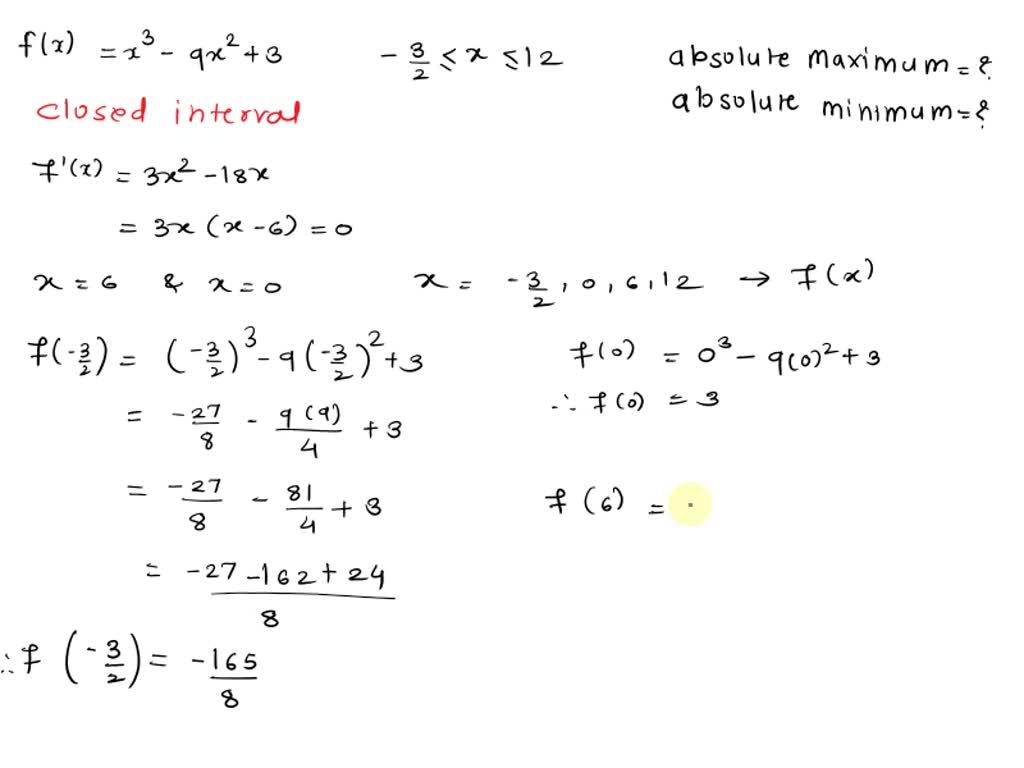 f(x) = x³ - 9x² + 3
-3/2 ≤ x ≤ 12
absolute maximum = ?
absolute minimum = ?
closed interval
f'(x) = 3x² - 18x
= 3x (x - 6) = 0
x = 6 & x = 0
x = -3/2, 0, 6, 12 → f(x)
f(-3/2) = (-3/2)³ - 9(-3/2)² + 3
= -27/8 - 9(9)/4 + 3
= -27/8 - 81/4 + 3
= -27 - 162 + 24 / 8
∴ f(-3/2) = -165/8
f(0) = 0³ - 9(0)² + 3
∴ f(0) = 3
f(6) =